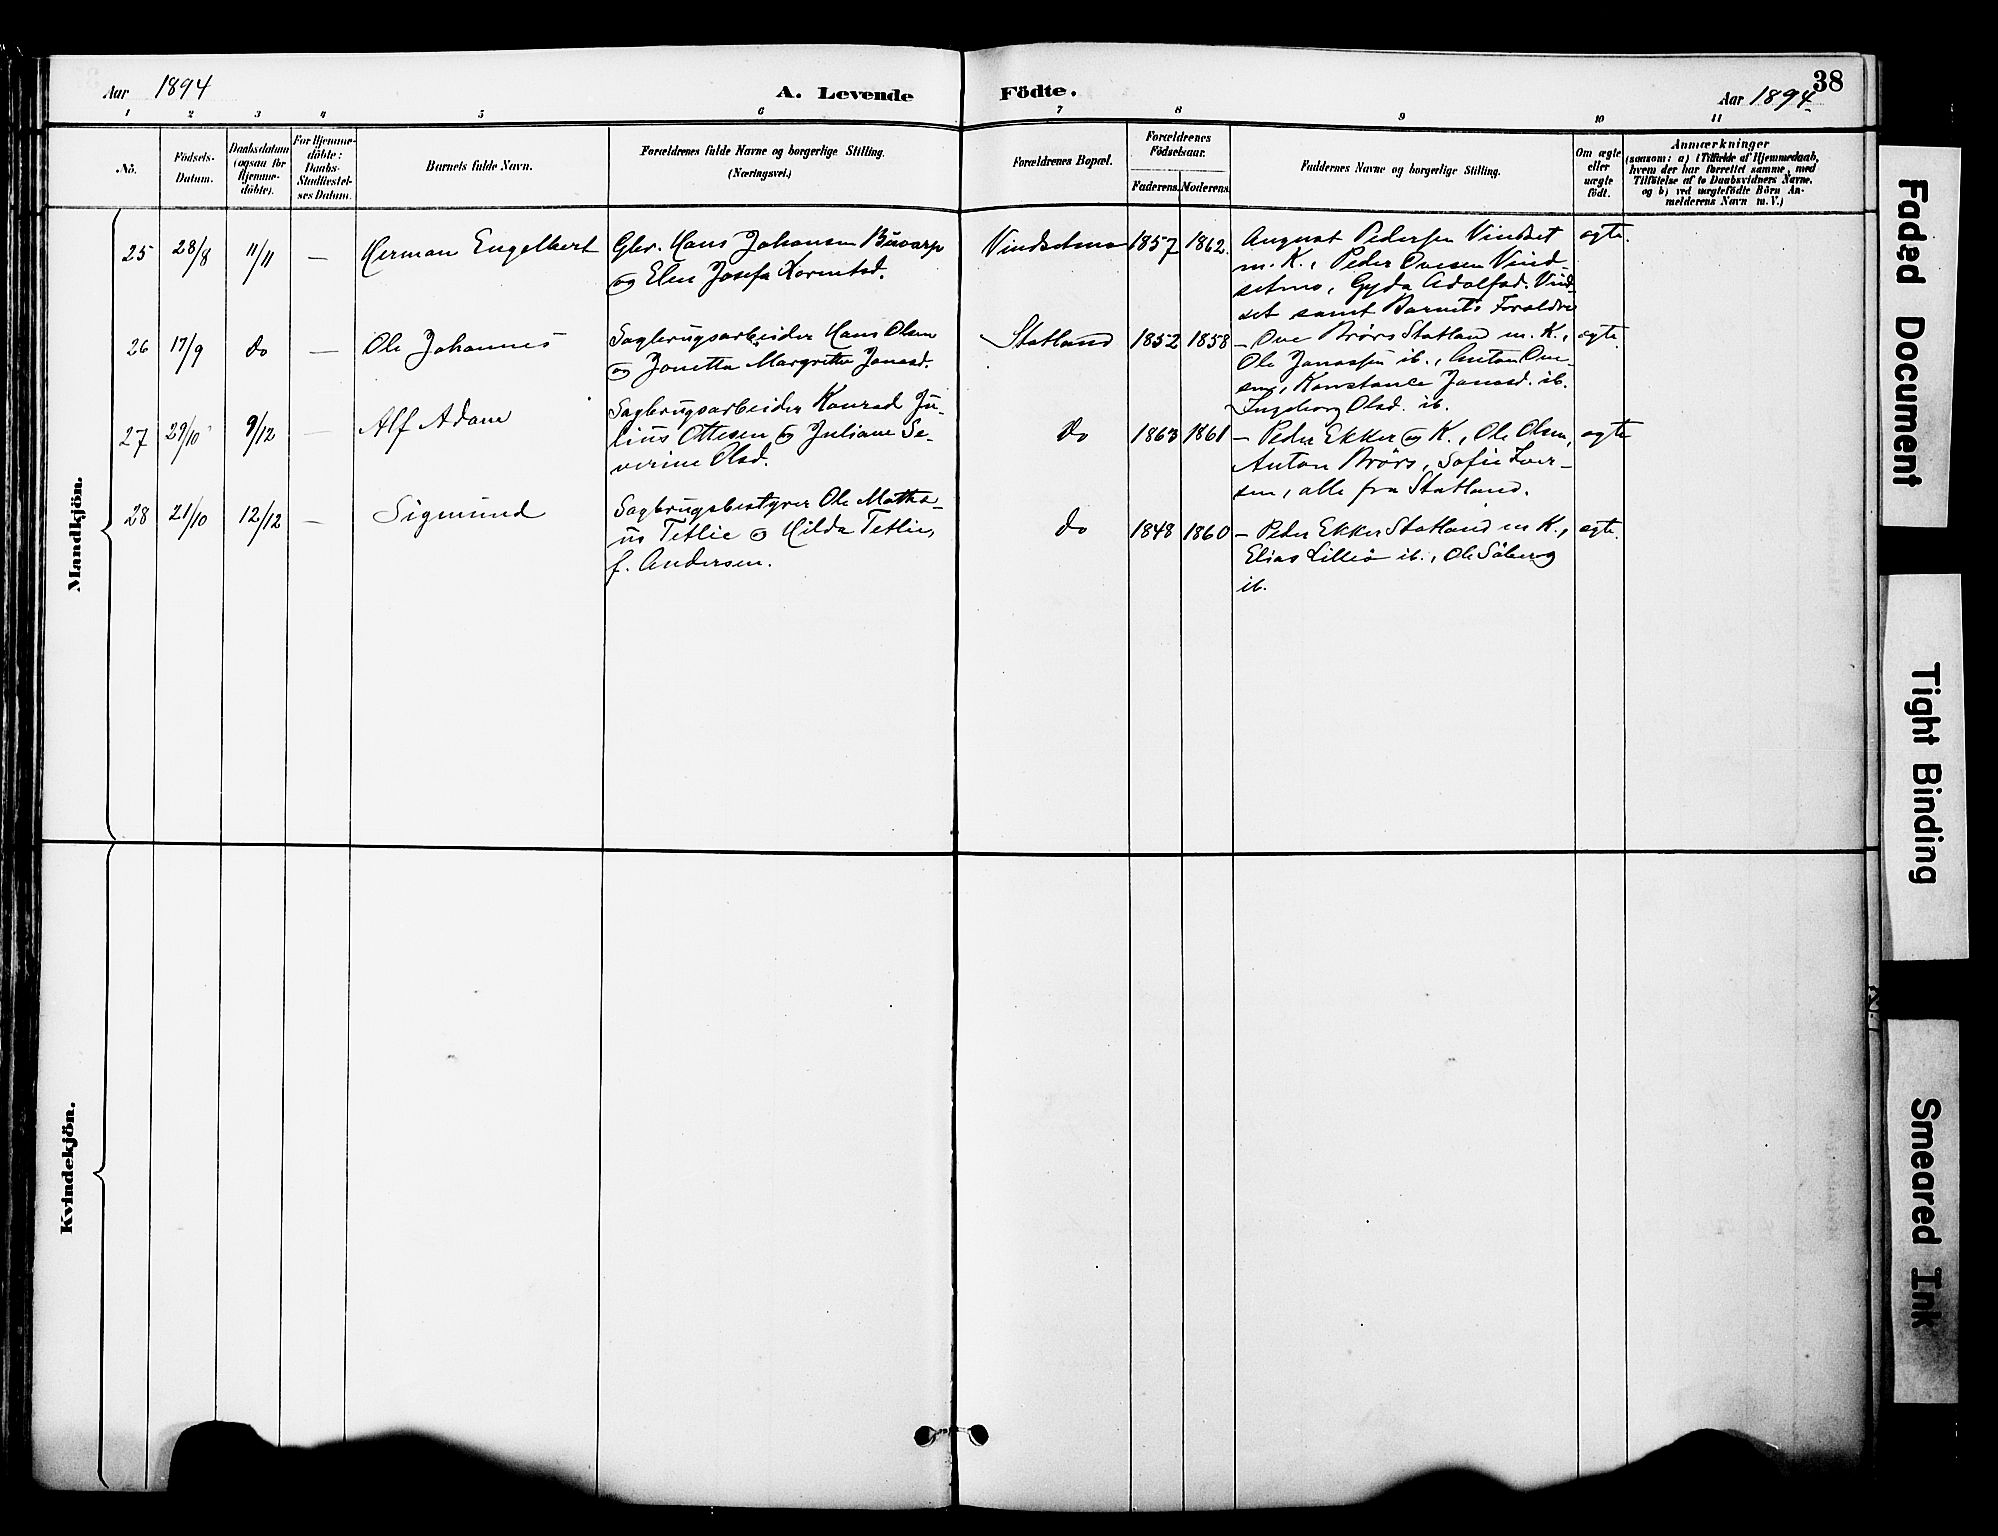 Aar 1894
A. Levende Födte.
Aar 1894
38
1 2 3 4 5 6 7 8 9 10 11
Nô.
Födsels-Datum.
Daabsdatum (ogsaa for Hjemmedöbte).
For Hjemmedöbte: Daabs-Stadfæstelses Datum.
Barnets fulde Navn.
Forældrenes fulde Navne og borgerlige Stilling.
(Næringsvei.)
Forældrenes Bopæl.
Forældrenes Födselsaar.
Faderens. Moderens.
Faddernes Navne og borgerlige Stilling.
Om ægte eller uægte födt.
Anmærkninger
(saasom: a) i Tilfælde af Hjemmedaab,
hvem der har forrettet samme, med
Tilföielse af to Daabsvidners Navne.
og b) ved uægtefödte Börn An-
melderens Navn m. V.)
Mandkjön.
25 28/8 11/11 — Herman Engelbert
Gbr. Hans Johansen
og Elen Josefa
Vindsetmo 1857 1862.
August Pedersen Vindset
m. K., Peder Ovesen Vind-
setmo, Gyda Adolfsd. Vind-
set samt Barnets Forældre
ægte.
26 17/9 do — Ole Johannes
Sagbrugsarbeider Hans Olsen
og Jonetta Margrethe Jonasd.
Statland 1852 1858
— Ove Brørs Statland m. K.,
Ole Jonassen ib., Anton Ove-
sen, Konstance Jonasd. ib.
Ingeborg Olsd. ib.
ægte.
27 29/10 9/12 — Alf Adam
Sagbrugsarbeider Konrad Ju-
lius Ottesen og Juliane Se-
verine Olsd.
do 1863 1861
— Peder Ekker og K., Ole Olsen,
Anton Brørs, Sofie Iver-
sen, alle fra Statland.
ægte
28 21/10 12/12 — Sigmund
Sagbrugsbestyrer Ole Mathæ-
us Tetlie og Hilda Tetlie,
f. Andersen.
do 1848 1860
— Peder Ekker Statland m K.,
Elias Lilleö ib., Ole Söberg
ib.
ægte.
Kvindekjön.
Faded Document
Tight Binding
Smeared Ink